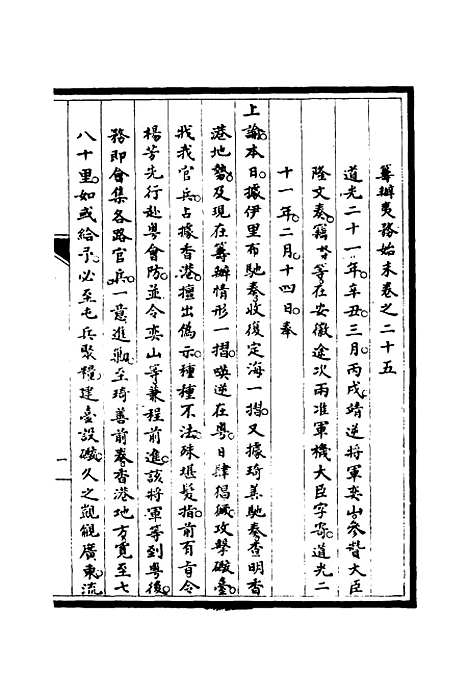 籌辦夷務始末卷之二十五
道光二十一年辛丑三月丙戌靖逆將軍奕山參贊大臣
隆文奏竊等在安徽途次兩准軍機大臣字寄道光二
十一年二月十四日奉
上諭本日據伊里布馳奏收復定海一摺又據琦善馳奏查明香
港地勢及現在籌辦情形一摺㗸逆在粵日肆猖獗攻擊礮臺
戕我官兵占據香港擅出偽示種種不法殊堪髮指前有旨令
楊芳先行赴粵會防並令奕山等兼程前進該將軍等到粵後
務即會集各路官兵一意進剿至琦善前奏香港地方寬至七
八十里如或給予必至屯兵聚糧建臺設礮久之覬覦廣東流
一